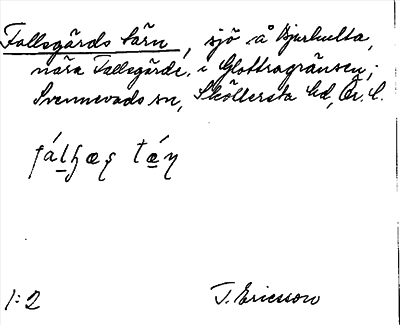 Follsgärds tärn, sjö å Bjurhulta,
nära Follsgärde, i Glottragränsen;
Svennevads sn, Sköllersta hd, Ör. l.
tǽɳ
1:2 T. Ericsson